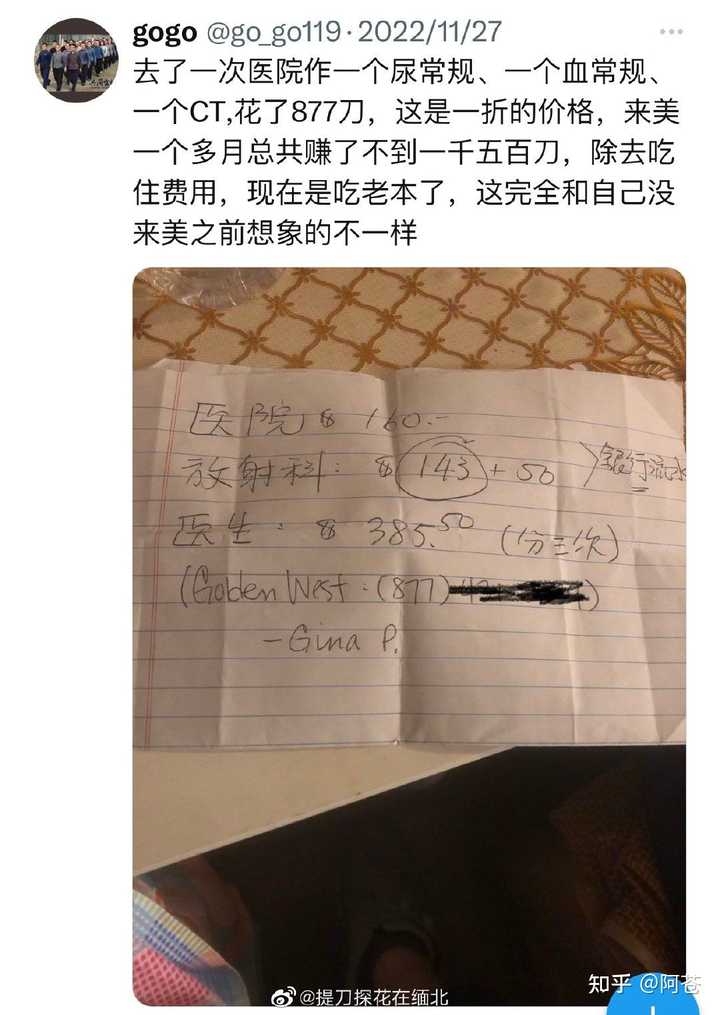 gogo @go_go119·2022/11/27
去了一次医院作一个尿常规、一个血常规、
一个CT,花了877刀，这是一折的价格，来美
一个多月总共赚了不到一千五百刀，除去吃
住费用，现在是吃老本了，这完全和自己没
来美之前想象的不一样
医院 $ 160.-
放射科: $ 143 + 50 〉银行流水
医生: $ 385.50 (份三次)
(Golden West: (877)
-Gina P.
知乎 @阿苍
@提刀探花在缅北